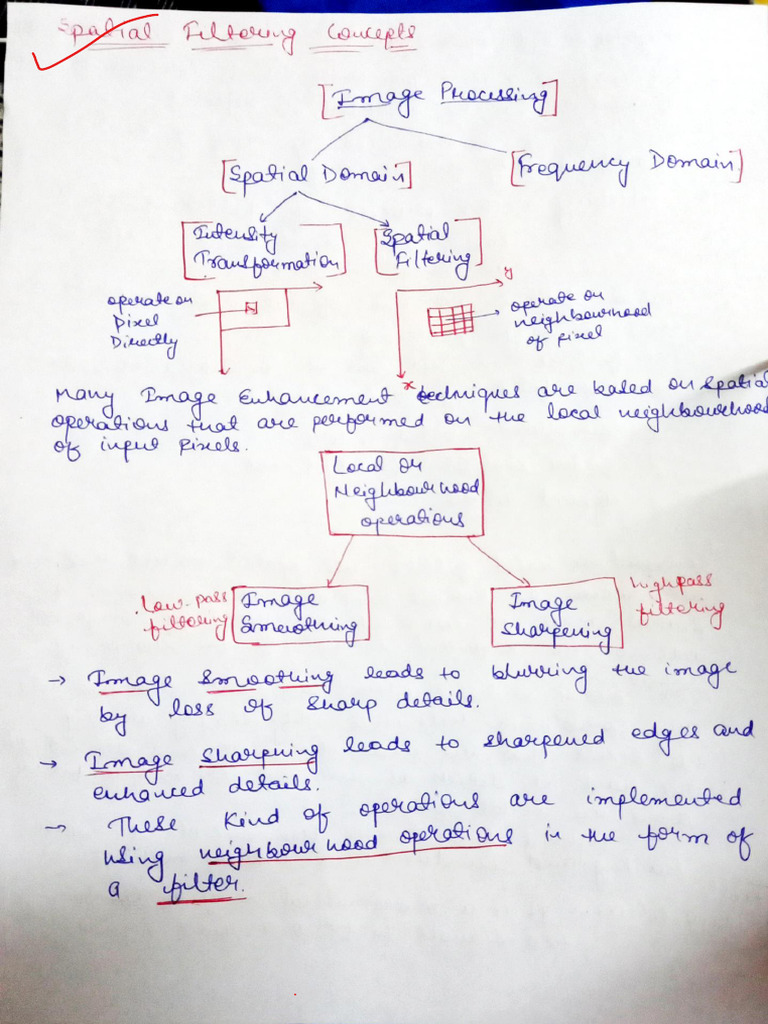 Spatial Filtering Concepts
[Image Processing]
[Spatial Domain]
[Frequency Domain]
[Intensity
Transformation]
[Spatial
Filtering]
operate on
Pixel
Directly
y
x
operate on
neighbourhood
of pixel
Many Image Enhancement techniques are based on spatial
operations that are performed on the local neighbourhood
of input pixels.
Local or
Neighbourhood
operations
Low-pass
filtering
Image
Smoothing
Image
Sharpening
high pass
filtering
→ Image Smoothing leads to blurring the image
by loss of sharp details.
→ Image sharpening leads to sharpened edges and
enhanced details.
→ These kind of operations are implemented
using neighbourhood operations in the form of
a filter.